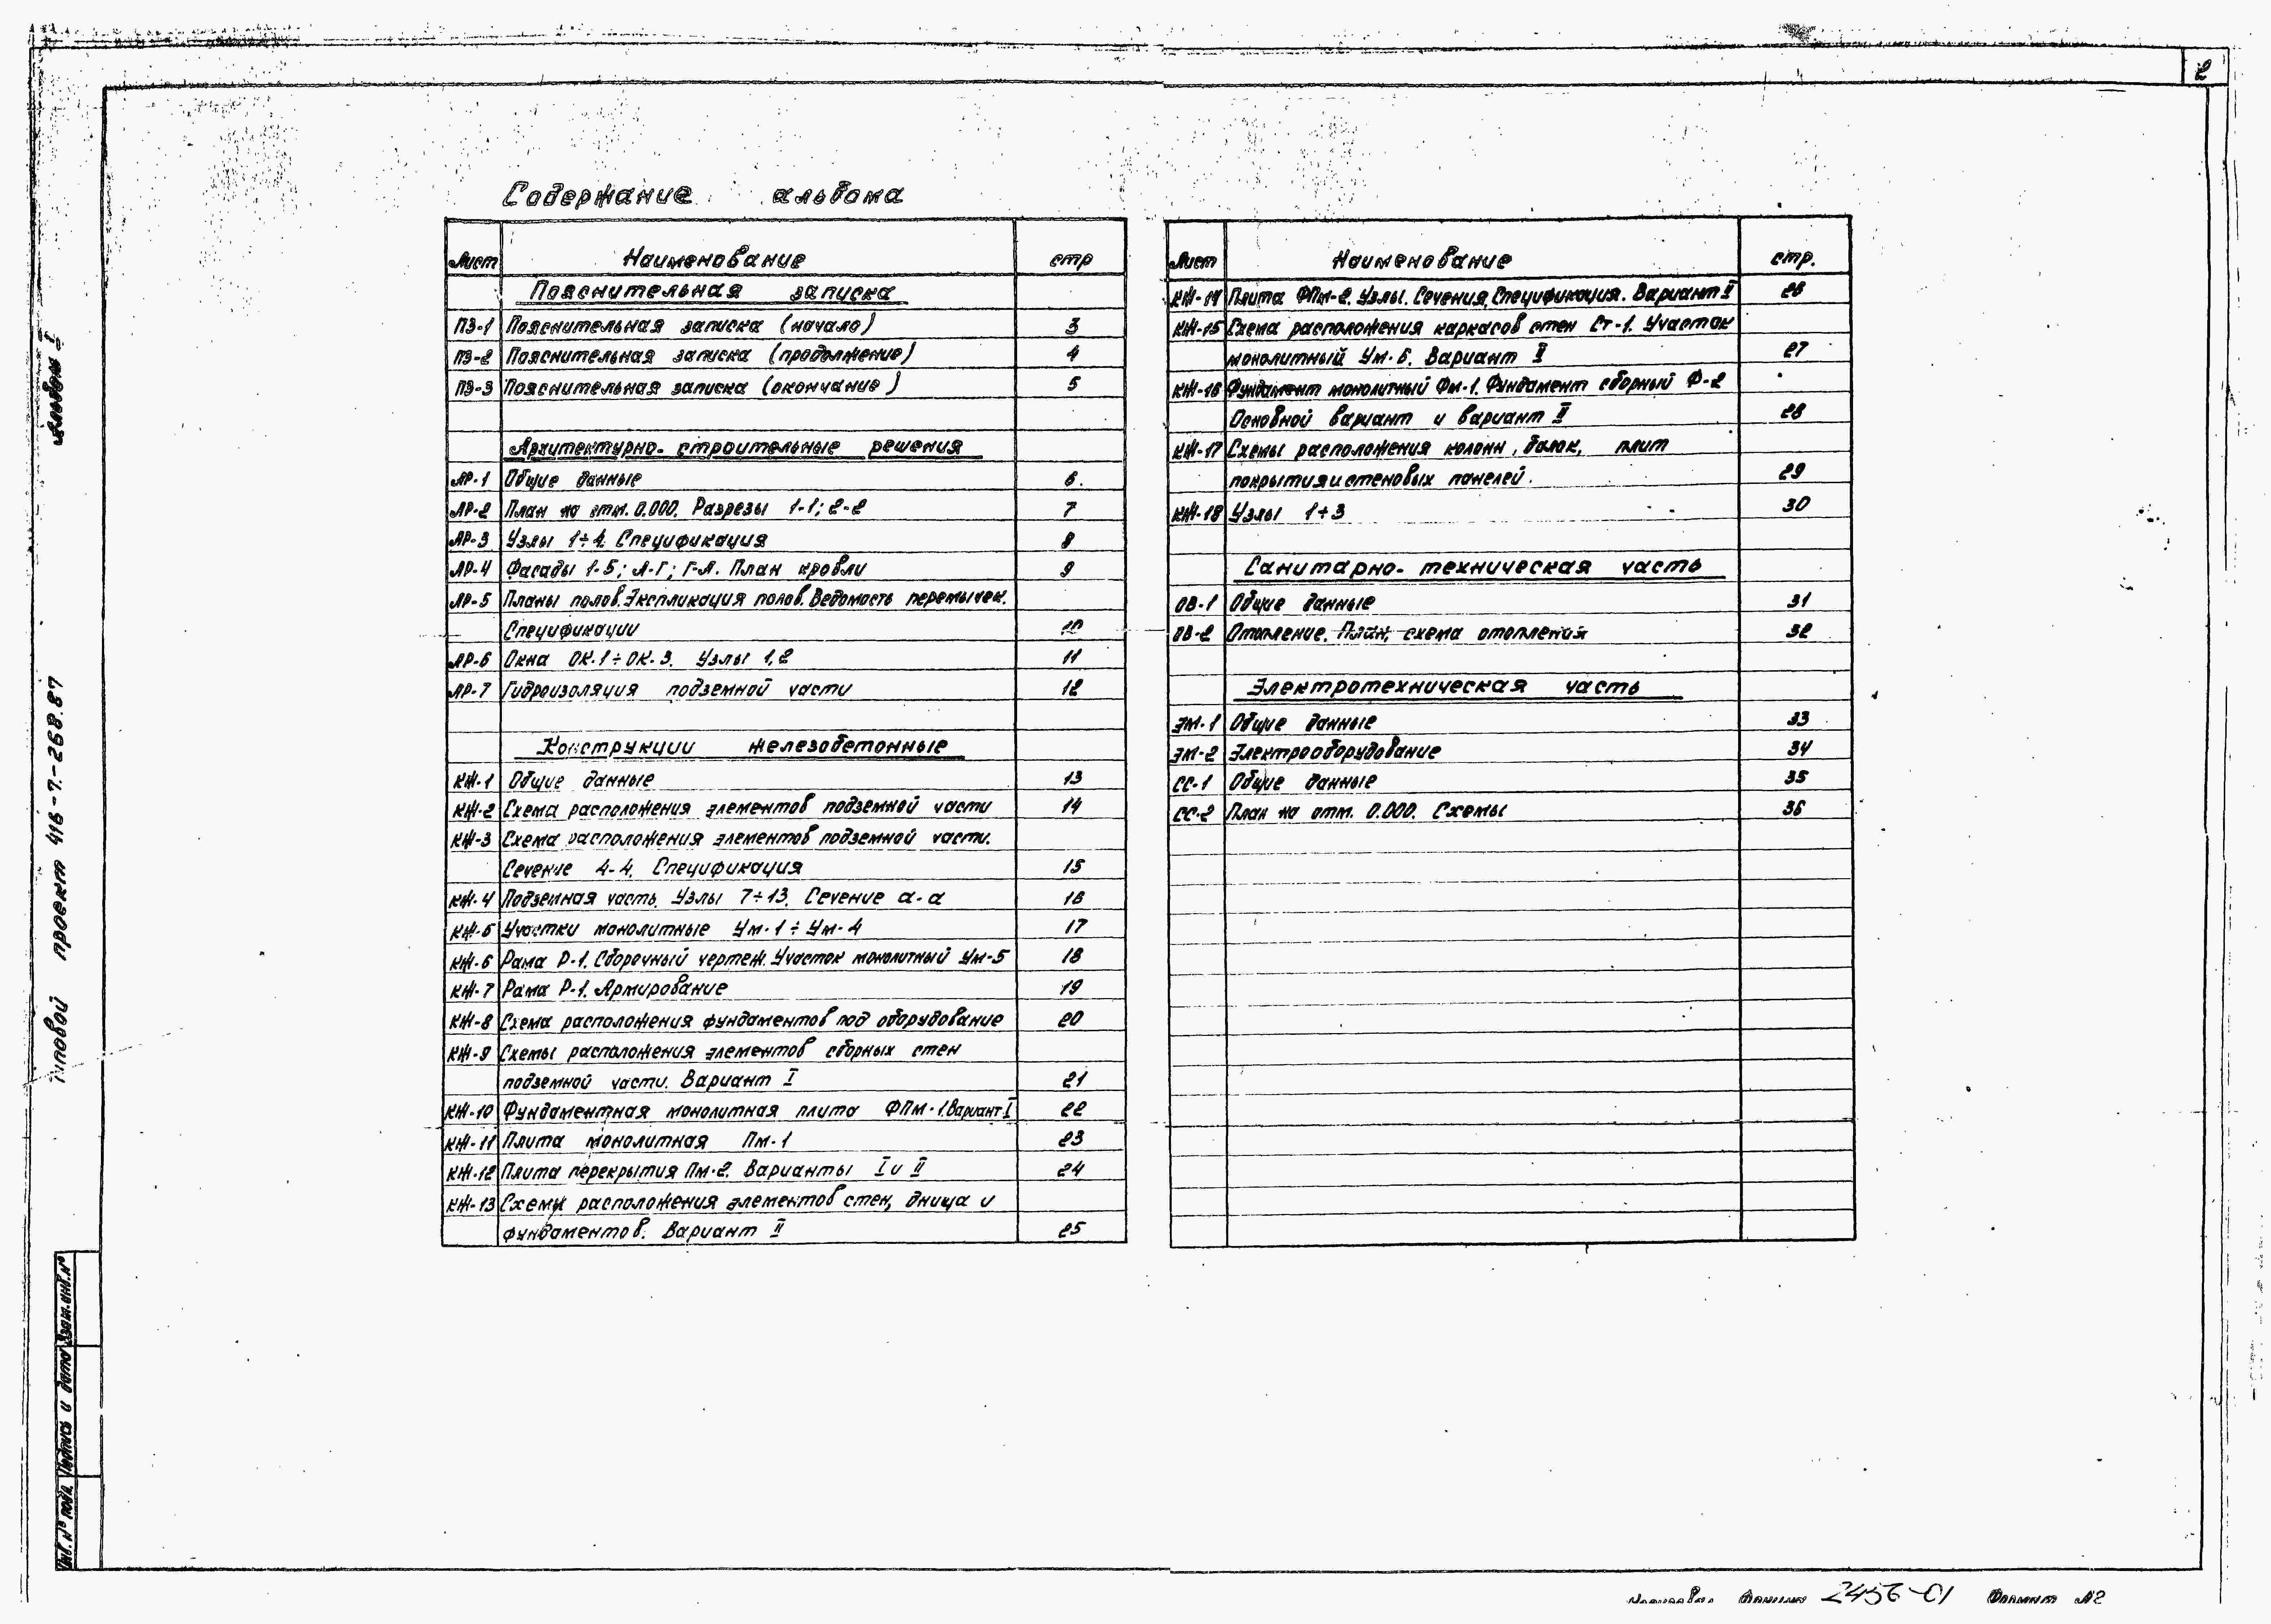 2
Содержание альбома
Лист Наименование стр
Пояснительная записка
ПЗ-1 Пояснительная записка (начало) 3
ПЗ-2 Пояснительная записка (продолжение) 4
ПЗ-3 Пояснительная записка (окончание) 5
Архитектурно-строительные решения
АР-1 Общие данные 6
АР-2 План на отм. 0.000. Разрезы 1-1; 2-2 7
АР-3 Узлы 1÷4. Спецификация 8
АР-4 Фасады 1-5; А-Г; Г-А. План кровли 9
АР-5 Планы полов. Экспликация полов. Ведомость перемычек.
Спецификации 10
АР-6 Окна ОК-1÷ОК-3. Узлы 1,2 11
АР-7 Гидроизоляция подземной части 12
Конструкции железобетонные
КЖ-1 Общие данные 13
КЖ-2 Схема расположения элементов подземной части 14
КЖ-3 Схема расположения элементов подземной части.
Сечение 4-4. Спецификация 15
КЖ-4 Подземная часть. Узлы 7÷13. Сечение а-а 16
КЖ-5 Участки монолитные Ум-1÷Ум-4 17
КЖ-6 Рама Р-1. Сборочный чертеж. Участок монолитный Ум-5 18
КЖ-7 Рама Р-1. Армирование 19
КЖ-8 Схема расположения фундаментов под оборудование 20
КЖ-9 Схемы расположения элементов сборных стен
подземной части. Вариант I 21
КЖ-10 Фундаментная монолитная плита ФПм-1. Вариант I 22
КЖ-11 Плита монолитная Пм-1 23
КЖ-12 Плита перекрытия Пм-2. Варианты I и II 24
КЖ-13 Схемы расположения элементов стен, днища и
фундаментов. Вариант II 25
Лист Наименование стр.
КЖ-14 Плита ФПм-2. Узлы. Сечения. Спецификация. Вариант II 26
КЖ-15 Схема расположения каркасов стен Ст-1. Участок
монолитный Ум-6. Вариант II 27
КЖ-16 Фундамент монолитный Фм-1. Фундамент сборный Ф-2
Основной вариант и вариант II 28
КЖ-17 Схемы расположения колонн, балок, плит
покрытия и стеновых панелей. 29
КЖ-18 Узлы 1÷3 30
Санитарно-техническая часть
ОВ-1 Общие данные 31
ОВ-2 Отопление. План, схема отопления 32
Электротехническая часть
ЭМ-1 Общие данные 33
ЭМ-2 Электрооборудование 34
СС-1 Общие данные 35
СС-2 План на отм. 0.000. Схемы 36
Альбом I
Типовой проект 416-7-268.87
Взам. инв. №
Подпись и дата
Инв. № подл.
2456-01 Формат А2